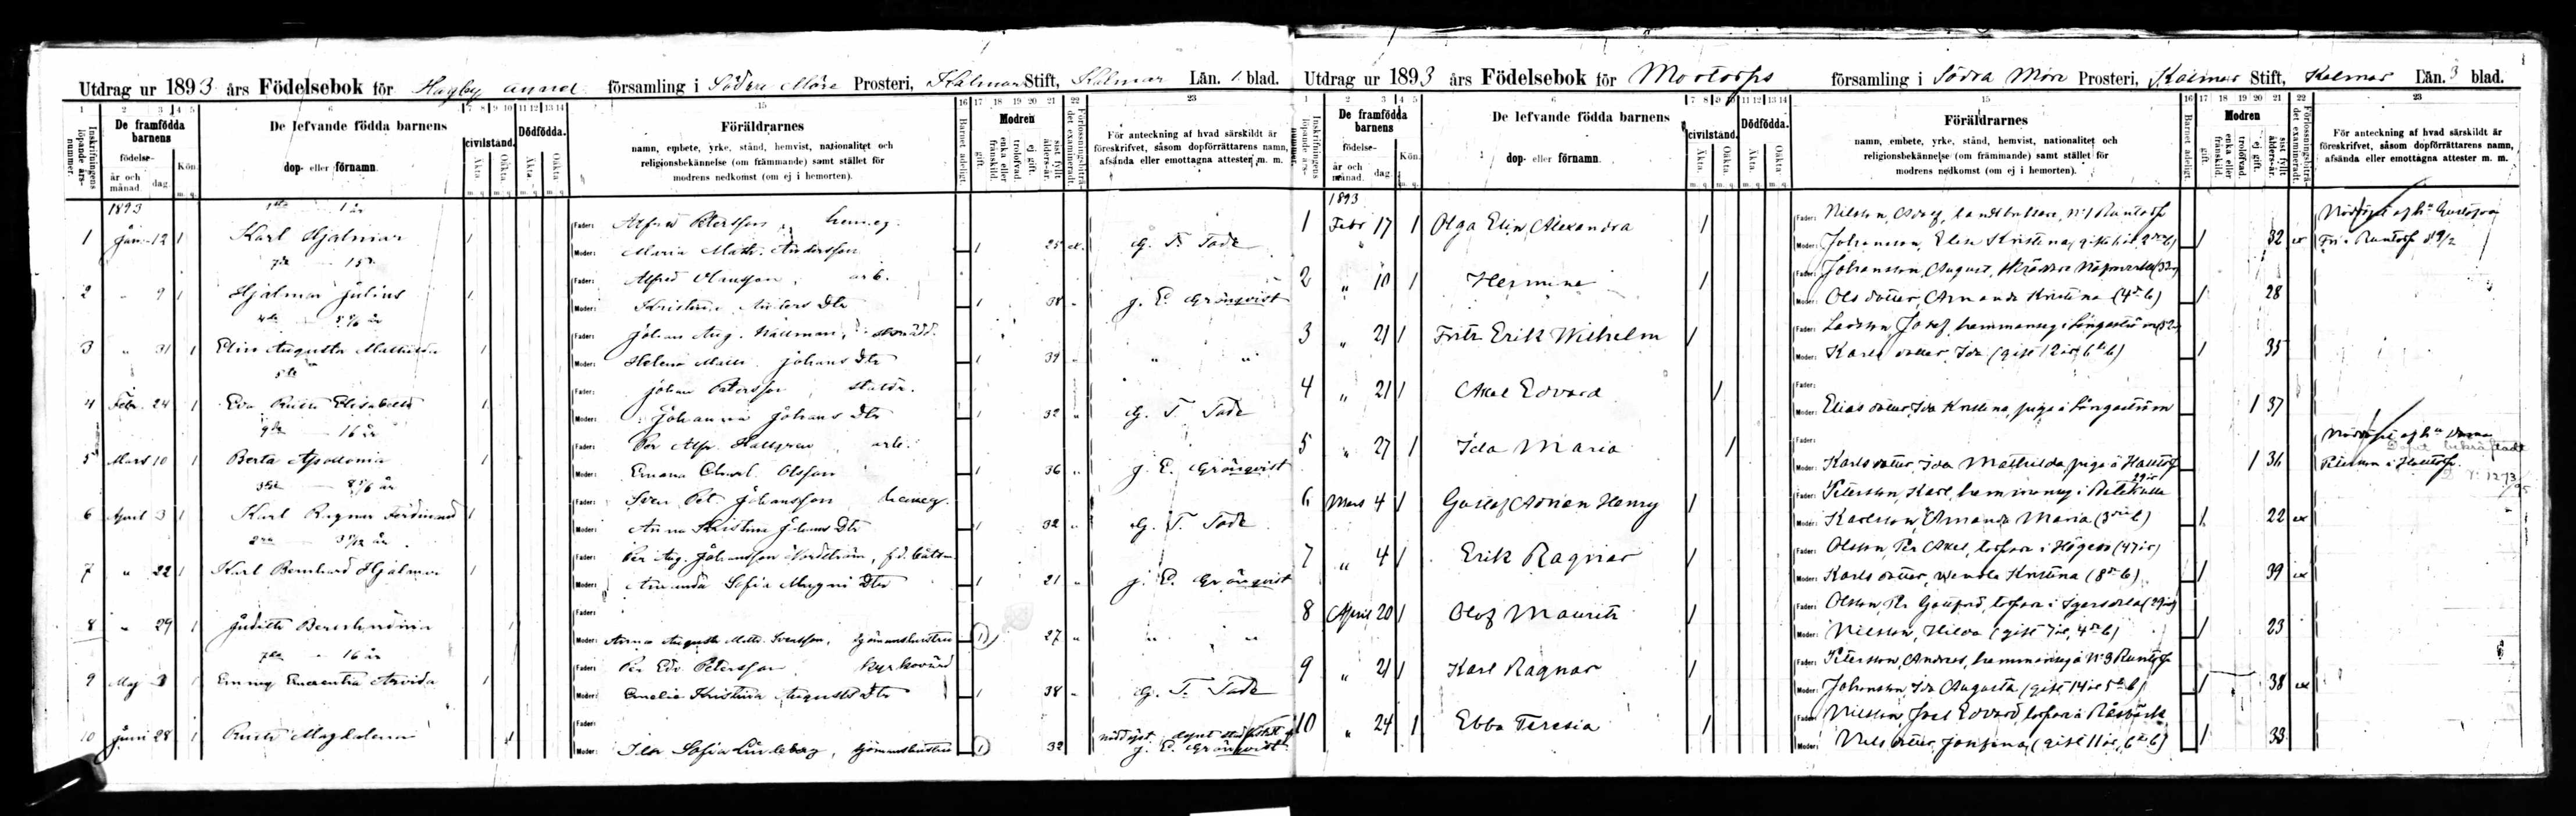 Utdrag ur 1893 års Födelsebok för Hagby annex församling i Södra Möre Prosteri, Kalmar Stift, Kalmar Län. 1 blad.
1 2 3 4 5 6 7 8 9 10 11 12 13 14 15 16 17 18 19 20 21 22 23
Inskrifningens löpande års-nummer.
De framfödda barnens
födelse-
år och månad. dag
Kön.
m. q.
De lefvande födda barnens
dop- eller förnamn
civilstånd.
Äkta. Oäkta.
Dödfödda.
Äkta. Oäkta.
Föräldrarnes
namn, embete, yrke, stånd, hemvist, nationalitet och
religionsbekännelse (om främmande) samt stället för
modrens nedkomst (om ej i hemorten).
Barnet adeligt.
Modren
gift.
enka eller frånskild.
trolofvad.
ej gift.
sist fyllt ålders-år.
Förlossningsbiträdet examineradt.
För anteckning af hvad särskildt är
föreskrifvet, såsom dopförrättarens namn,
afsända eller emottagna attester m. m.
1893
1 Jan. 12 1 Karl Hjalmar 1
Fader: Alfred Petersson, hemeg.
Moder: Maria Math. Andersson 1 25 ex. G. T. Tade
2 " 9 1 Hjalmar Julius 1
Fader: Alfred Olausson, arb.
Moder: Kristina Anders Dtr 1 38 " J. E. Grönqvist
3 " 31 1 Elin Augusta Mathilda 1
Fader: Johan Aug. Hällman, skrädd.
Moder: Helena Math. Johans Dtr 1 39 " " "
4 Febr. 24 1 Eva Ruth Elisabeth 1
Fader: Johan Petersson, statdr.
Moder: Johanna Johans Dtr 1 32 " G. T. Tade
16 år
5 Mars 10 1 Berta Apollonia 1
Fader: Per Alfr. Hallgren arb.
Moder: Emma Charl. Olsson 1 36 " J. E. Grönqvist
6 April 3 1 Karl Ragnar Ferdinand 1
Fader: Sven Pet. Johansson hemeg.
Moder: Anna Kristina Johans Dtr 1 32 " G. T. Tade
7 " 22 1 Karl Bernhard Hjalmar 1
Fader: Per Aug. Johansson Nordström, f.d. båtsm.
Moder: Amanda Sofia Magni Dtr 1 21 " J. E. Grönqvist
8 " 29 1 Judith Bernhardina 1
Fader:
Moder: Anna Augusta Math. Svensson, sjömanshustru 1 27 " " "
16 år
9 Maj 3 1 Emmy Emerentia Arvida 1
Fader: Per Edv. Petersson, kyrkovärd
Moder: Emelie Kristina Augusts Dtr 1 38 " G. T. Tade
10 Juni 28 1 Ruth Magdalena 1
Fader:
Moder: Ida Sofia Lindeberg, sjömanshustru 1 32 nöddöpt
J. E. Grönqvist
Utdrag ur 1893 års Födelsebok för Mortorps församling i Södra Möre Prosteri, Kalmar Stift, Kalmar Län. 3 blad.
1 2 3 4 5 6 7 8 9 10 11 12 13 14 15 16 17 18 19 20 21 22 23
Inskrifningens löpande års-nummer.
De framfödda barnens
födelse-
år och månad. dag.
Kön.
m. q.
De lefvande födda barnens
dop- eller förnamn
civilstånd.
Äkta. Oäkta.
Dödfödda.
Äkta. Oäkta.
Föräldrarnes
namn, embete, yrke, stånd, hemvist, nationalitet och
religionsbekännelse (om främmande) samt stället för
modrens nedkomst (om ej i hemorten).
Barnet adeligt.
Modren
gift.
enka eller frånskild.
trolofvad.
ej gift.
sist fyllt ålders-år.
Förlossningsbiträdet examineradt.
För anteckning af hvad särskildt är
föreskrifvet, såsom dopförrättarens namn,
afsända eller emottagna attester m. m.
1893
1 Febr 17 1 Olga Elin Alexandra 1
Fader: Nilsson, Adolf, landtbrukare, N:1 Runtorp Nöddöpt af h:u Gustafva
Moder: Johansson, Elise Kristina 1 32 ex i Runtorp d 9/2
2 " 10 1 Hermine 1
Fader: Johansson, August
Moder: Olsdotter, Amanda Kristina (4de b) 1 28
3 " 21 1 Fritz Erik Wilhelm 1
Fader: Larsson, Josef, hemmanseg i Långaström
Moder: Karlsdotter, Ida (gift 12 år 6te b) 1 35
4 " 21 1 Axel Edvard 1
Fader:
Moder: Eliasdotter, Ida Kristina, piga i Långaström 1 37
5 " 27 1 Ida Maria 1
Fader: Nöddöpt af h:u
Moder: Karlsdotter, Ida Mathilda, piga i Halltorp 1 36 Peterson i Halltorp.
6 Mars 4 1 Gustaf Adrian Henry 1
Fader: Petersson, Karl, hemmanseg i
Moder: Karlsson, Amanda Maria (3die b) 1 22 ex
7 " 4 1 Erik Ragnar 1
Fader: Olsson, Per Axel, torpare i (47 år)
Moder: Karlsdotter, Wendla Kristina (8de b) 1 39 ex
8 April 20 1 Olof Mauritz 1
Fader: Olsson, Per Gottfrid, torpare i (29 år)
Moder: Nilsson, Hilda (gift 7 år, 4de b) 1 23
9 " 21 1 Karl Ragnar 1
Fader: Petersson, Andreas, hemmanseg å N:3 Runtorp
Moder: Johansson, Ida Augusta (gift 14 år 5te b) 1 38 ex
10 " 24 1 Ebba Teresia 1
Fader: Nilsson, Joel Edvard, torpare i
Moder: Nilsdotter, Josefina (gift 11 år, 6te b) 1 33